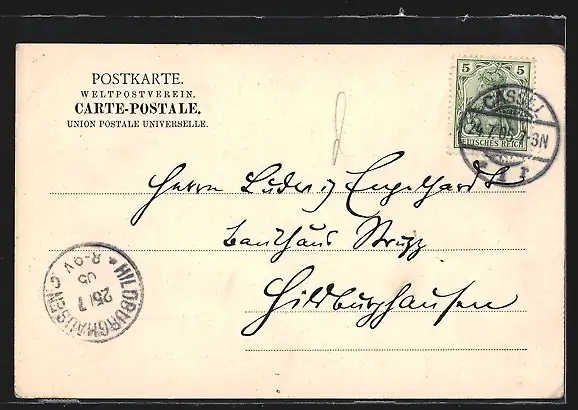 POSTKARTE.
WELTPOSTVEREIN.
CARTE-POSTALE.
UNION POSTALE UNIVERSELLE.
5 5
DEUTSCHES REICH
CASSEL
24.7.05. 2-3N
1
Herrn Ludwig Engelhardt
Bankhaus Strupp
Hildburghausen
HILDBURGHAUSEN
25 7
05
8-9V.